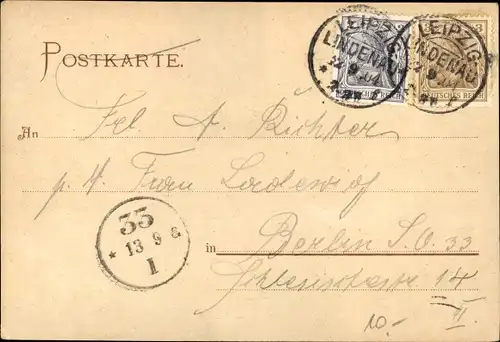 POSTKARTE.
LEIPZIG
LINDENAU
12 9 04
DEUTSCHES REICH
LEIPZIG
LINDENAU
DEUTSCHES REICH
An Frl. A. Richter
p. A. Frau
35
* 13 9 8
1
in Berlin S.O. 33
Schlesischestraße 14
II
10.-